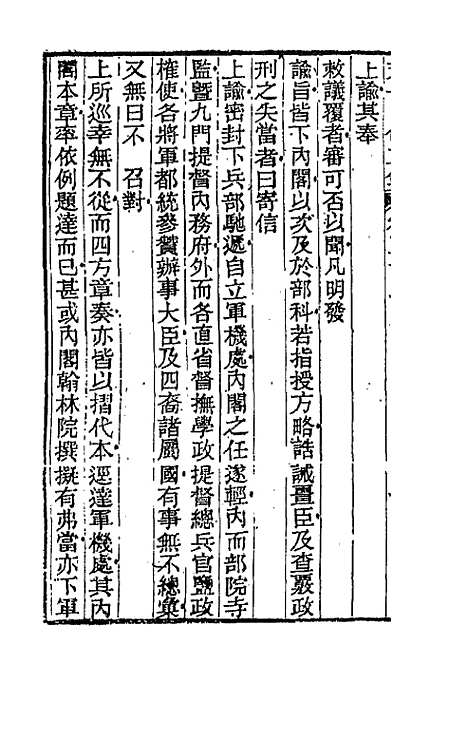 上諭其奉
敕議覆者審可否以聞凡明發
諭旨皆下內閣以次及於部科若指授方略誥誡臣及查覈政
刑之失當者曰寄信
上諭密封下兵部馳遞自立軍機處內閣之任遂輕內而部院寺
監暨九門提督內務府外而各直省督撫學政提督總兵官鹽政
榷使各將軍都統參贊辦事大臣及四裔諸屬國有事無不總彙
又無日不 召對
上所巡幸無不從而四方章奏亦皆以摺代本逕達軍機處其內
閣本章率依例題達而已甚或內閣翰林院撰擬有弗當亦下軍